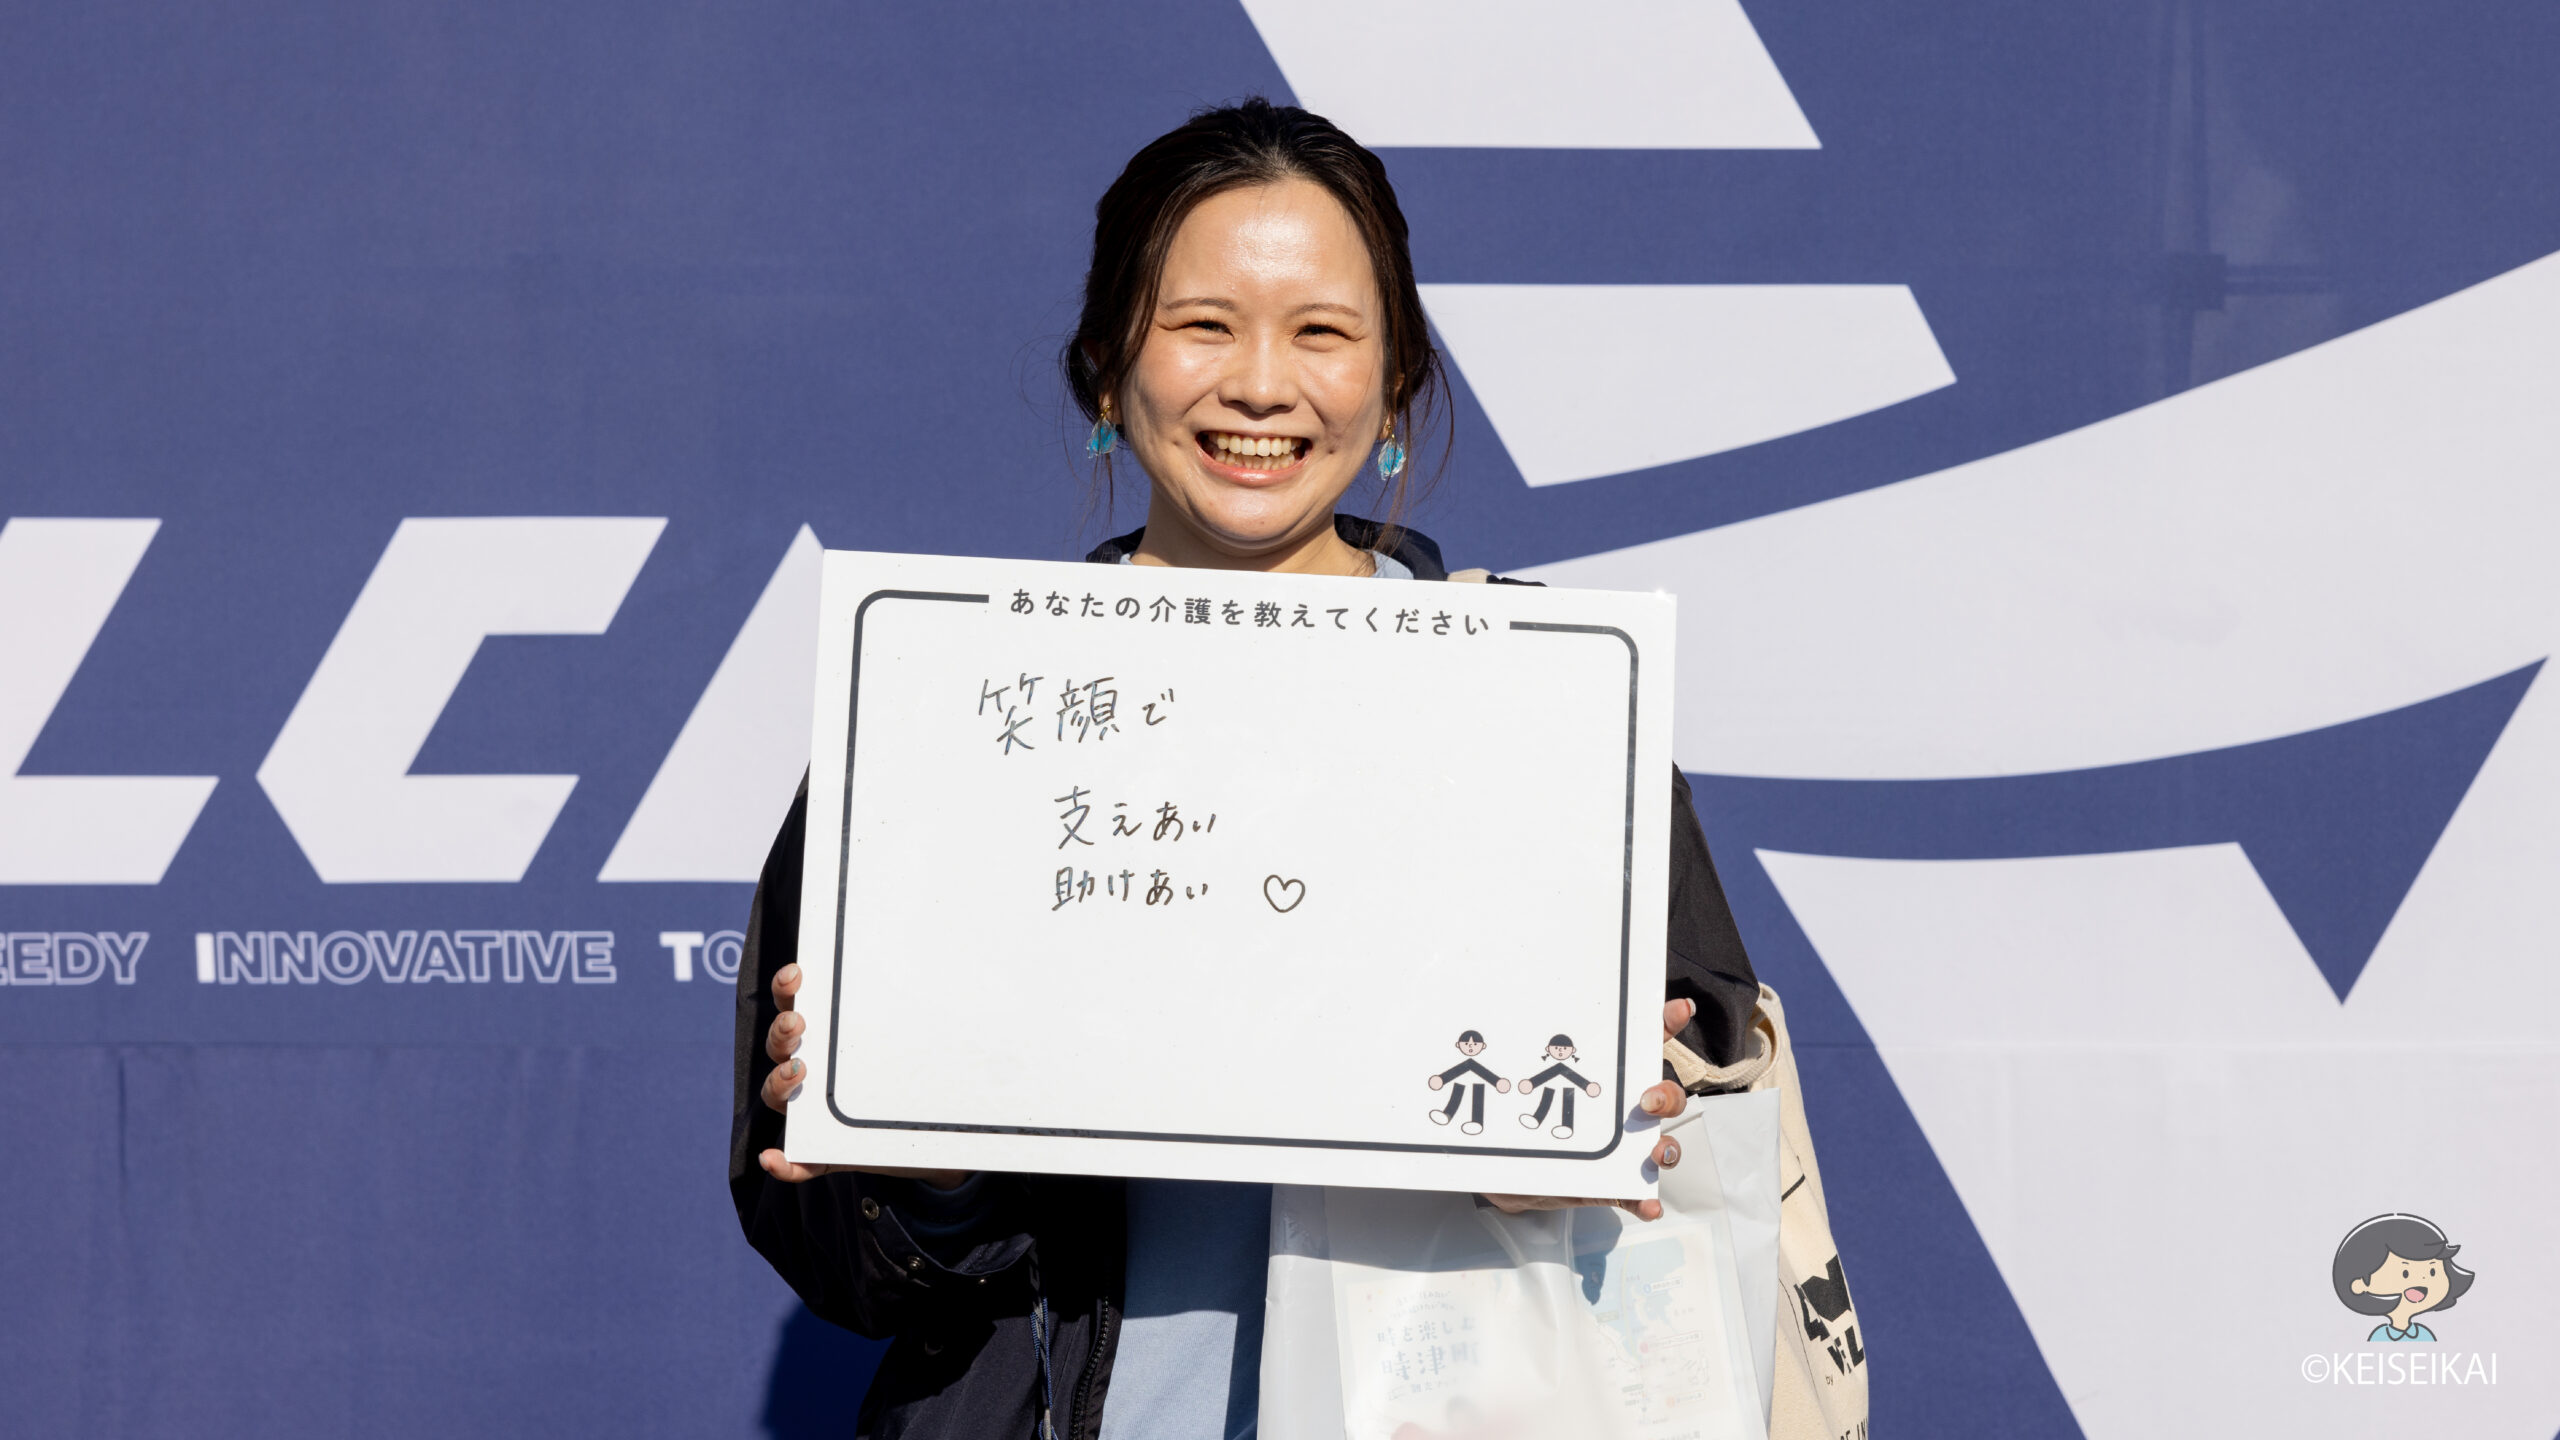 LC
EEDY INNOVATIVE TO
あなたの介護を教えてください
笑顔で
支えあい
助けあい ♡
時津
by
©KEISEIKAI